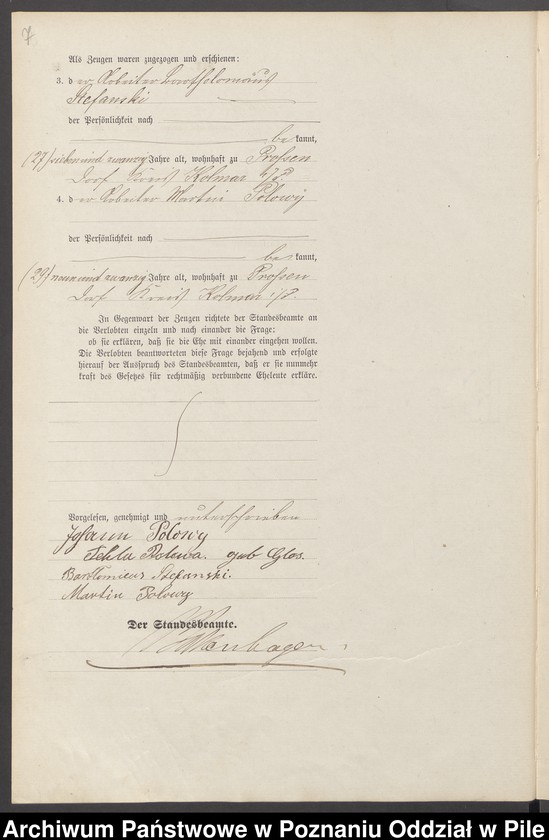 7
Als Zeugen waren zugezogen und erschienen:
3. der Arbeiter Bartholomäus
Stefanski
der Persönlichkeit nach
bekannt,
(27) sieben und zwanzig Jahre alt, wohnhaft zu Prossen
Dorf Kreis Kolmar i/P.
4. der Arbeiter Martin Polowy
der Persönlichkeit nach
bekannt,
(29) neun und zwanzig Jahre alt, wohnhaft zu Prossen
Dorf Kreis Kolmar i/P.
In Gegenwart der Zeugen richtete der Standesbeamte an
die Verlobten einzeln und nach einander die Frage:
ob sie erklären, daß sie die Ehe mit einander eingehen wollen.
Die Verlobten beantworteten diese Frage bejahend und erfolgte
hierauf der Ausspruch des Standesbeamten, daß er sie nunmehr
kraft des Gesetzes für rechtmäßig verbundene Eheleute erkläre.
Vorgelesen, genehmigt und unterschrieben
Johann Polowy
Tekla geb Glos.
Stefanski.
Martin Polowy
Der Standesbeamte.
Archiwum Państwowe w Poznaniu Oddział w Pile